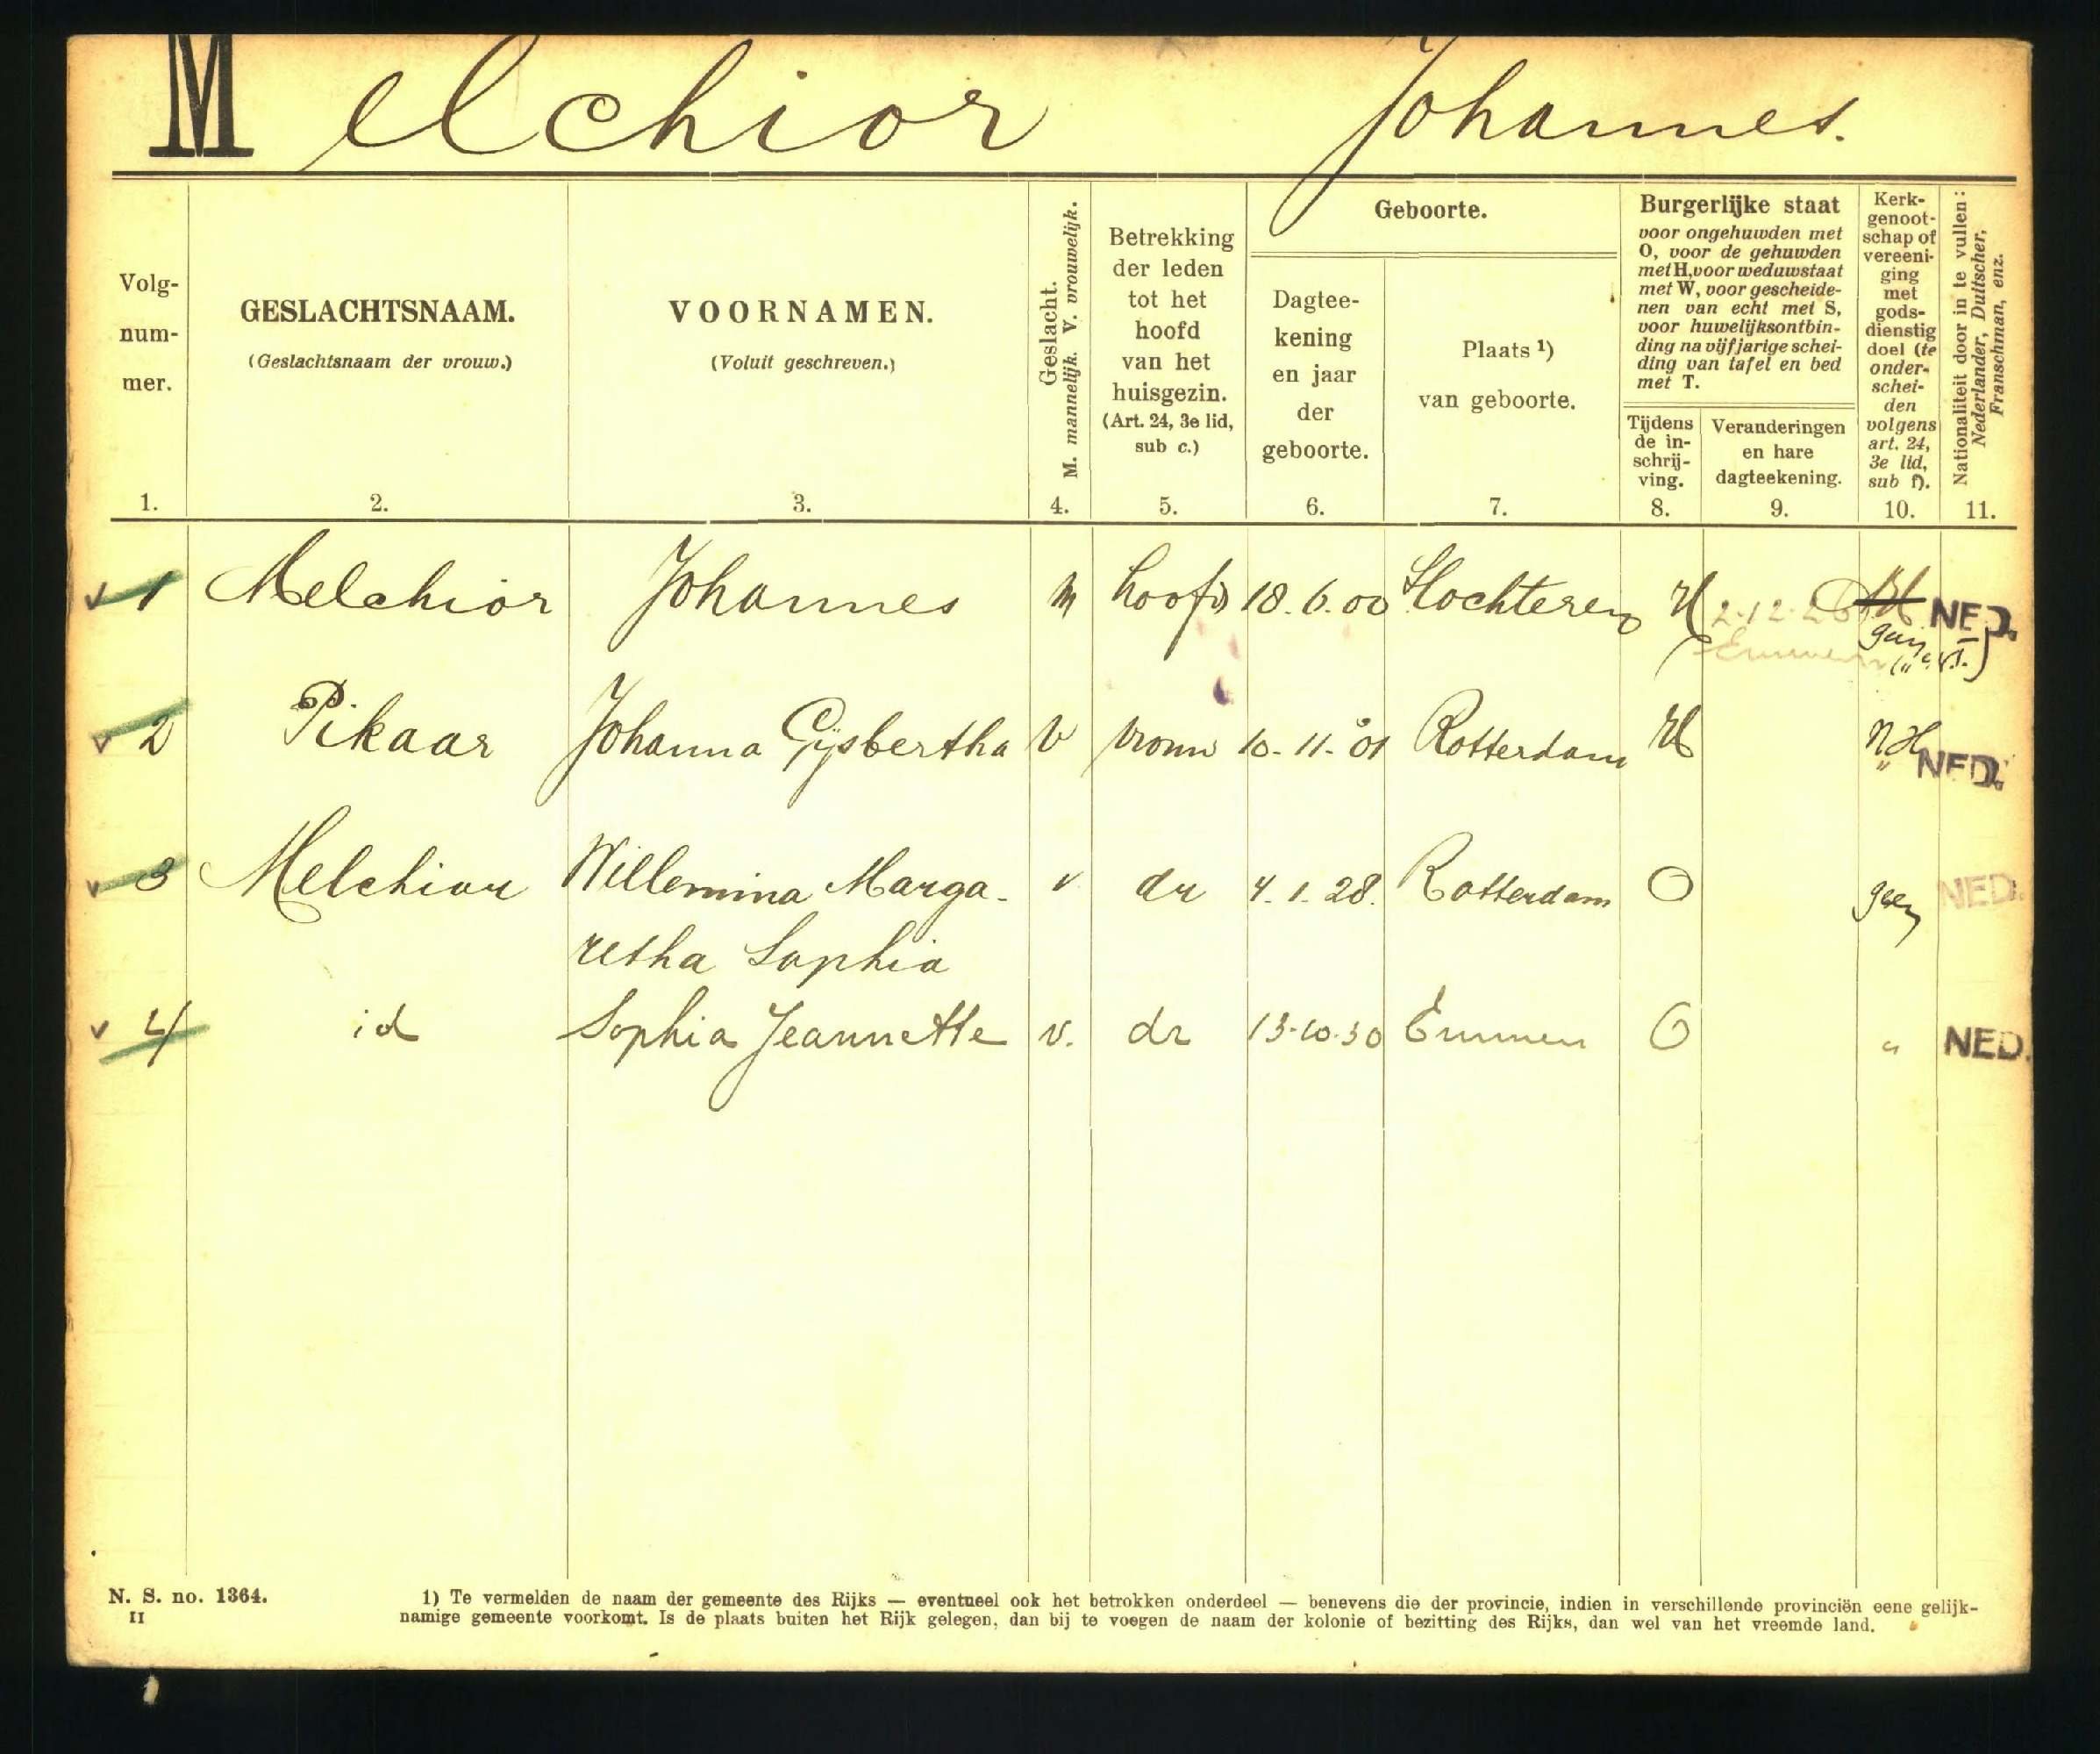 Melchior Johannes.
Volg-
num-
mer.
1.
GESLACHTSNAAM.
(Geslachtsnaam der vrouw.)
2.
VOORNAMEN.
(Voluit geschreven.)
3.
Geslacht.
M. mannelijk. V. vrouwelijk.
4.
Betrekking
der leden
tot het
hoofd
van het
huisgezin.
(Art. 24, 3e lid,
sub c.)
5.
Geboorte.
Dagtee-
kening
en jaar
der
geboorte.
6.
Plaats 1)
van geboorte.
7.
Burgerlijke staat
voor ongehuwden met
O, voor de gehuwden
met H, voor weduwstaat
met W, voor gescheide-
nen van echt met S,
voor huwelijksontbin-
ding na vijfjarige schei-
ding van tafel en bed
met T.
Tijdens
de in-
schrij-
ving.
8.
Veranderingen
en hare
dagteekening.
9.
Kerk-
genoot-
schap of
vereeni-
ging
met
gods-
dienstig
doel (te
onder-
schei-
den
volgens
art. 24,
3e lid,
sub f).
10.
Nationaliteit door in te vullen:
Nederlander, Duitscher,
Franschman, enz.
11.
1 Melchior Johannes m hoofd 18.6.00 Slochteren H 2-12-26 NH NED.
Emmen geen
2 Pikaar Johanna Gijsbertha V vrouw 10-11-01 Rotterdam H N.H. NED.
3 Melchior Willemina Marga- v dr 4.1.28. Rotterdam O geen NED.
retha Sophia
4 id Sophia Jeannette v. dr 13-10-30 Emmen O " NED.
N. S. no. 1364.
II
1) Te vermelden de naam der gemeente des Rijks — eventueel ook het betrokken onderdeel — benevens die der provincie, indien in verschillende provinciën eene gelijk-
namige gemeente voorkomt. Is de plaats buiten het Rijk gelegen, dan bij te voegen de naam der kolonie of bezitting des Rijks, dan wel van het vreemde land.